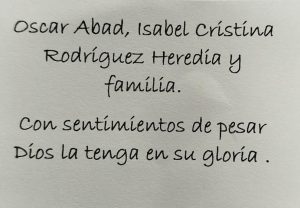 Oscar Abad, Isabel Cristina
Rodríguez Heredia y
familia.
Con sentimientos de pesar
Dios la tenga en su gloria .